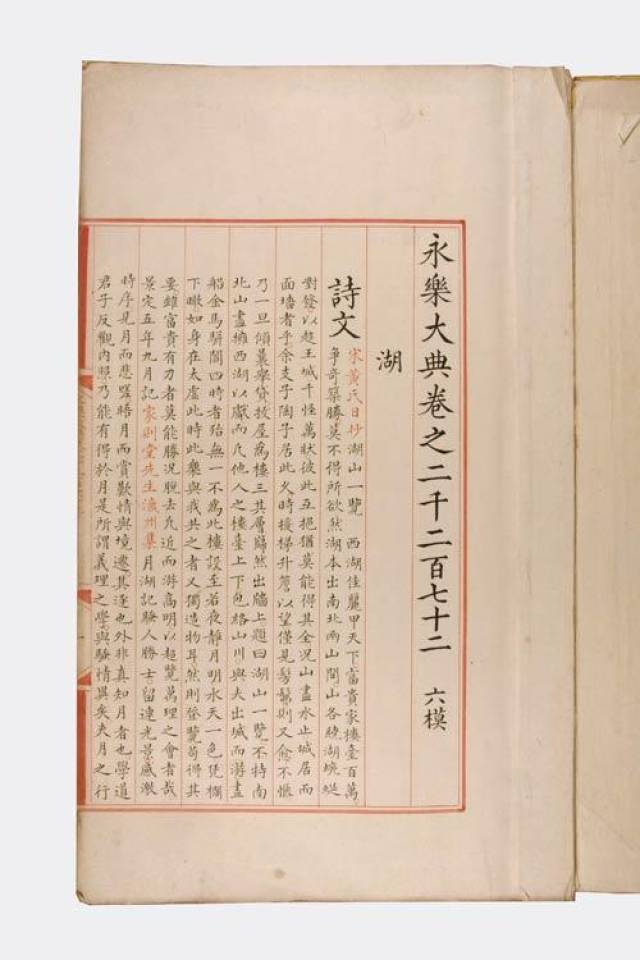 永樂大典卷之二千二百七十二　六模
湖
詩文宋黃氏日抄湖山一覽　西湖佳麗甲天下富貴家樓臺百萬
爭奇築勝莫不得所欲然湖本出南北兩山間山各繞湖蜿蜒
對發以趍王城千怪萬狀彼此互挹猶莫能得其全况山盡水止城居而
面墻者乎余支子陶子居此久時援梯升簷以望僅見髣髴則又愈不愜
乃一旦傾囊舉貸拔屋為樓三其層巋然出牆上題曰湖山一覽不特南
北山盡擁西湖以獻而凡他人之樓臺上下包絡山川與夫出城而游畫
船金馬駢闐四時者殆無一不為此樓設至若夜靜月明水天一色凭欄
下瞰如身在太虛此時此樂與我共之者又獨造物耳然則登覽苟得其
要雖富貴有力者莫能勝况脫去凡近而游高明以超覽萬理之會者哉
景定五年九月記家則堂先生瀛州集月湖記騷人勝士留連光景感激
時序見月而悲墅梧月而賞歡情與境遷其逐也外非真知月者也學道
君子反觀內照乃能有得於月是所謂義理之學與騷情異矣夫月之行